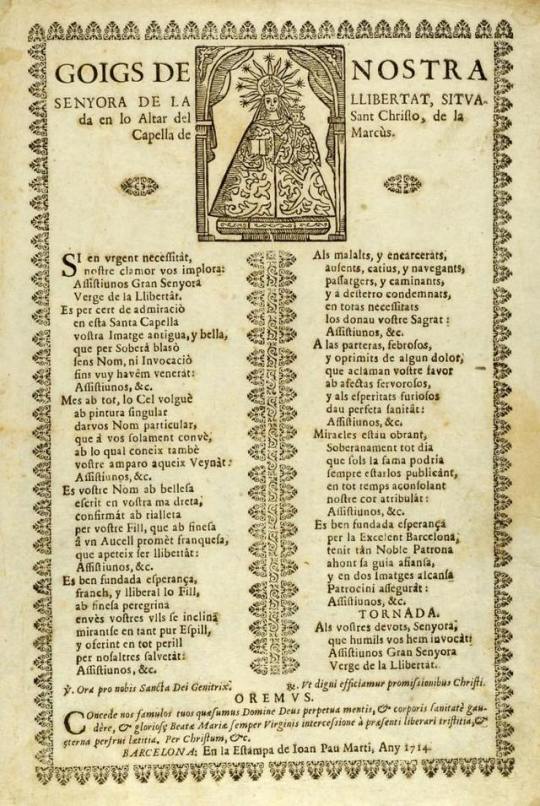 GOIGS DE NOSTRA
SENYORA DE LA LLIBERTAT, SITVA-
da en lo Altar del Sant Christo, de la
Capella de Marcùs.
SI en vrgent necessitàt,
nostre clamor vos implora:
Assistiunos Gran Senyora
Verge de la Llibertàt.
Es per cert de admiraciò
en esta Santa Capella
vostra Imatge antigua, y bella,
que per Soberà blasò
sens Nom, ni Invocaciò
fins vuy havèm venerat:
Assistiunos, &c.
Mes ab tot, lo Cel volguè
ab pintura singular
darvos Nom particular,
que à vos solament convè,
ab lo qual coneix tambè
vostre amparo aqueix Veynàt:
Assistiunos, &c.
Es vostre Nom ab bellesa
escrit en vostra ma dreta,
confirmàt ab rialleta
per vostre Fill, que ab finesa
à vn Aucell promèt franquesa,
que apeteix ser llibertàt:
Assistiunos, &c.
Es ben fundada esperança,
franch, y lliberal lo Fill,
ab finesa peregrina
envès vostres vlls se inclina
mirantse en tant pur Espill,
y oferint en tot perill
per nosaltres salvetàt:
Assistiunos, &c.
Als malalts, y encarceràts,
ausents, catius, y navegants,
passatgers, y caminants,
y à desterro condemnats,
en totas necessitats
los donau vostre Sagrat:
Assistiunos, &c.
A las parteras, febrosos,
y oprimits de algun dolor,
que aclaman vostre favor
ab afectas fervorosos,
y als esperitats furiosos
dau perfeta sanitàt:
Assistiunos, &c.
Miracles estau obrant,
Soberanament tot dia
que sols la fama podria
sempre estarlos publicànt,
en tot temps aconsolant
nostre cor atribulàt:
Assistiunos, &c.
Es ben fundada esperança
per la Excelent Barcelona,
tenir tàn Noble Patrona
ahont sa guia afiansa,
y en dos Imatges alcansa
Patrocini asseguràt:
Assistiunos, &c.
TORNADA.
Als vostres devots, Senyora,
que humils vos hem invocàt:
Assistiunos Gran Senyora
Verge de la Llibertat.
℣. Ora pro nobis Sancta Dei Genitrix. ℟. Vt digni efficiamur promissionibus Christi.
OREMVS.
Concede nos famulos tuos quæsumus Domine Deus perpetua mentis, & corporis sanitatè gau-
dère, & gloriosę Beatæ Mariæ semper Virginis intercessione à præsenti liberari tristitia, &
ęterna perfrui lætitia. Per Christum, &c.
BARCELONA: En la Estampa de Ioan Pau Marti, Any 1714.